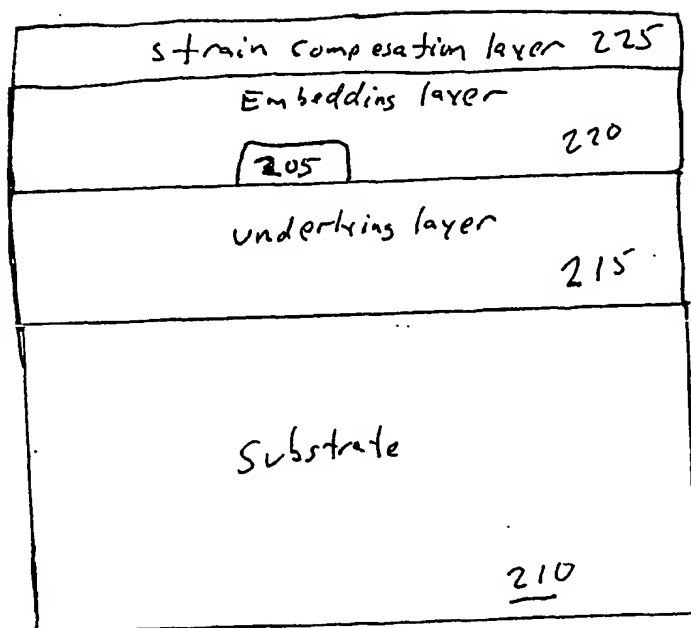 strain compesation layer 225
Embedding layer
220
205
underlying layer
215
Substrate
210